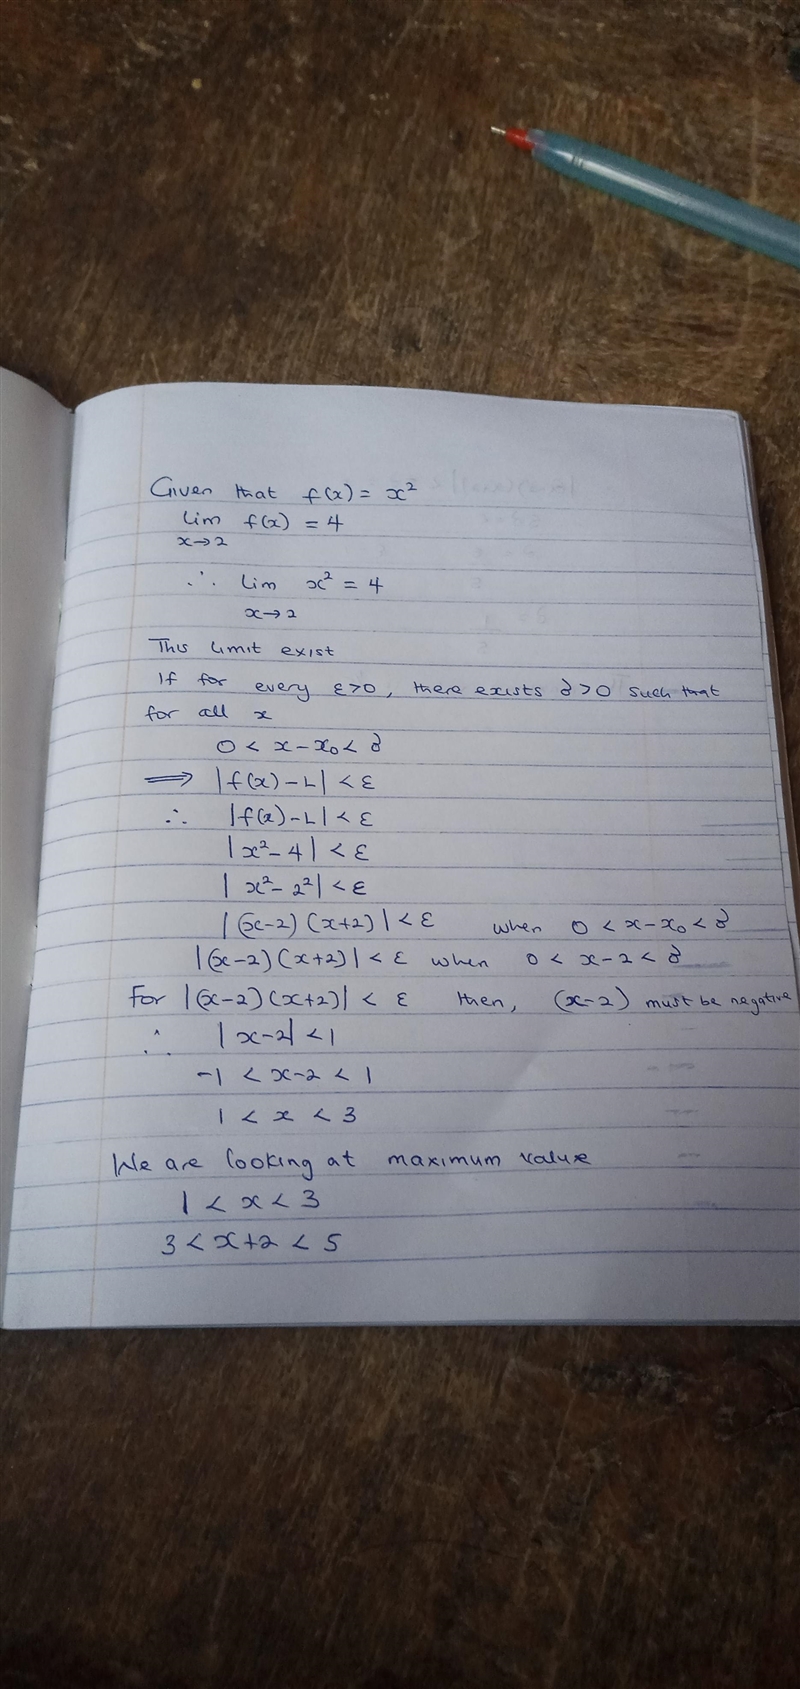 Given that f(x) = x²
lim f(x) = 4
x→2
∴ lim x² = 4
x→2
This limit exist
If for every ε>0, there exists δ>0 such that
for all x
0 < x - x₀ < δ
⟹ |f(x) - L| < ε
∴ |f(x) - L| < ε
|x² - 4| < ε
|x² - 2²| < ε
|(x-2)(x+2)| < ε when 0 < x - x₀ < δ
|(x-2)(x+2)| < ε when 0 < x - 2 < δ
For |(x-2)(x+2)| < ε then, (x-2) must be negative
∴ |x-2| < 1
-1 < x-2 < 1
1 < x < 3
We are looking at maximum value
1 < x < 3
3 < x+2 < 5